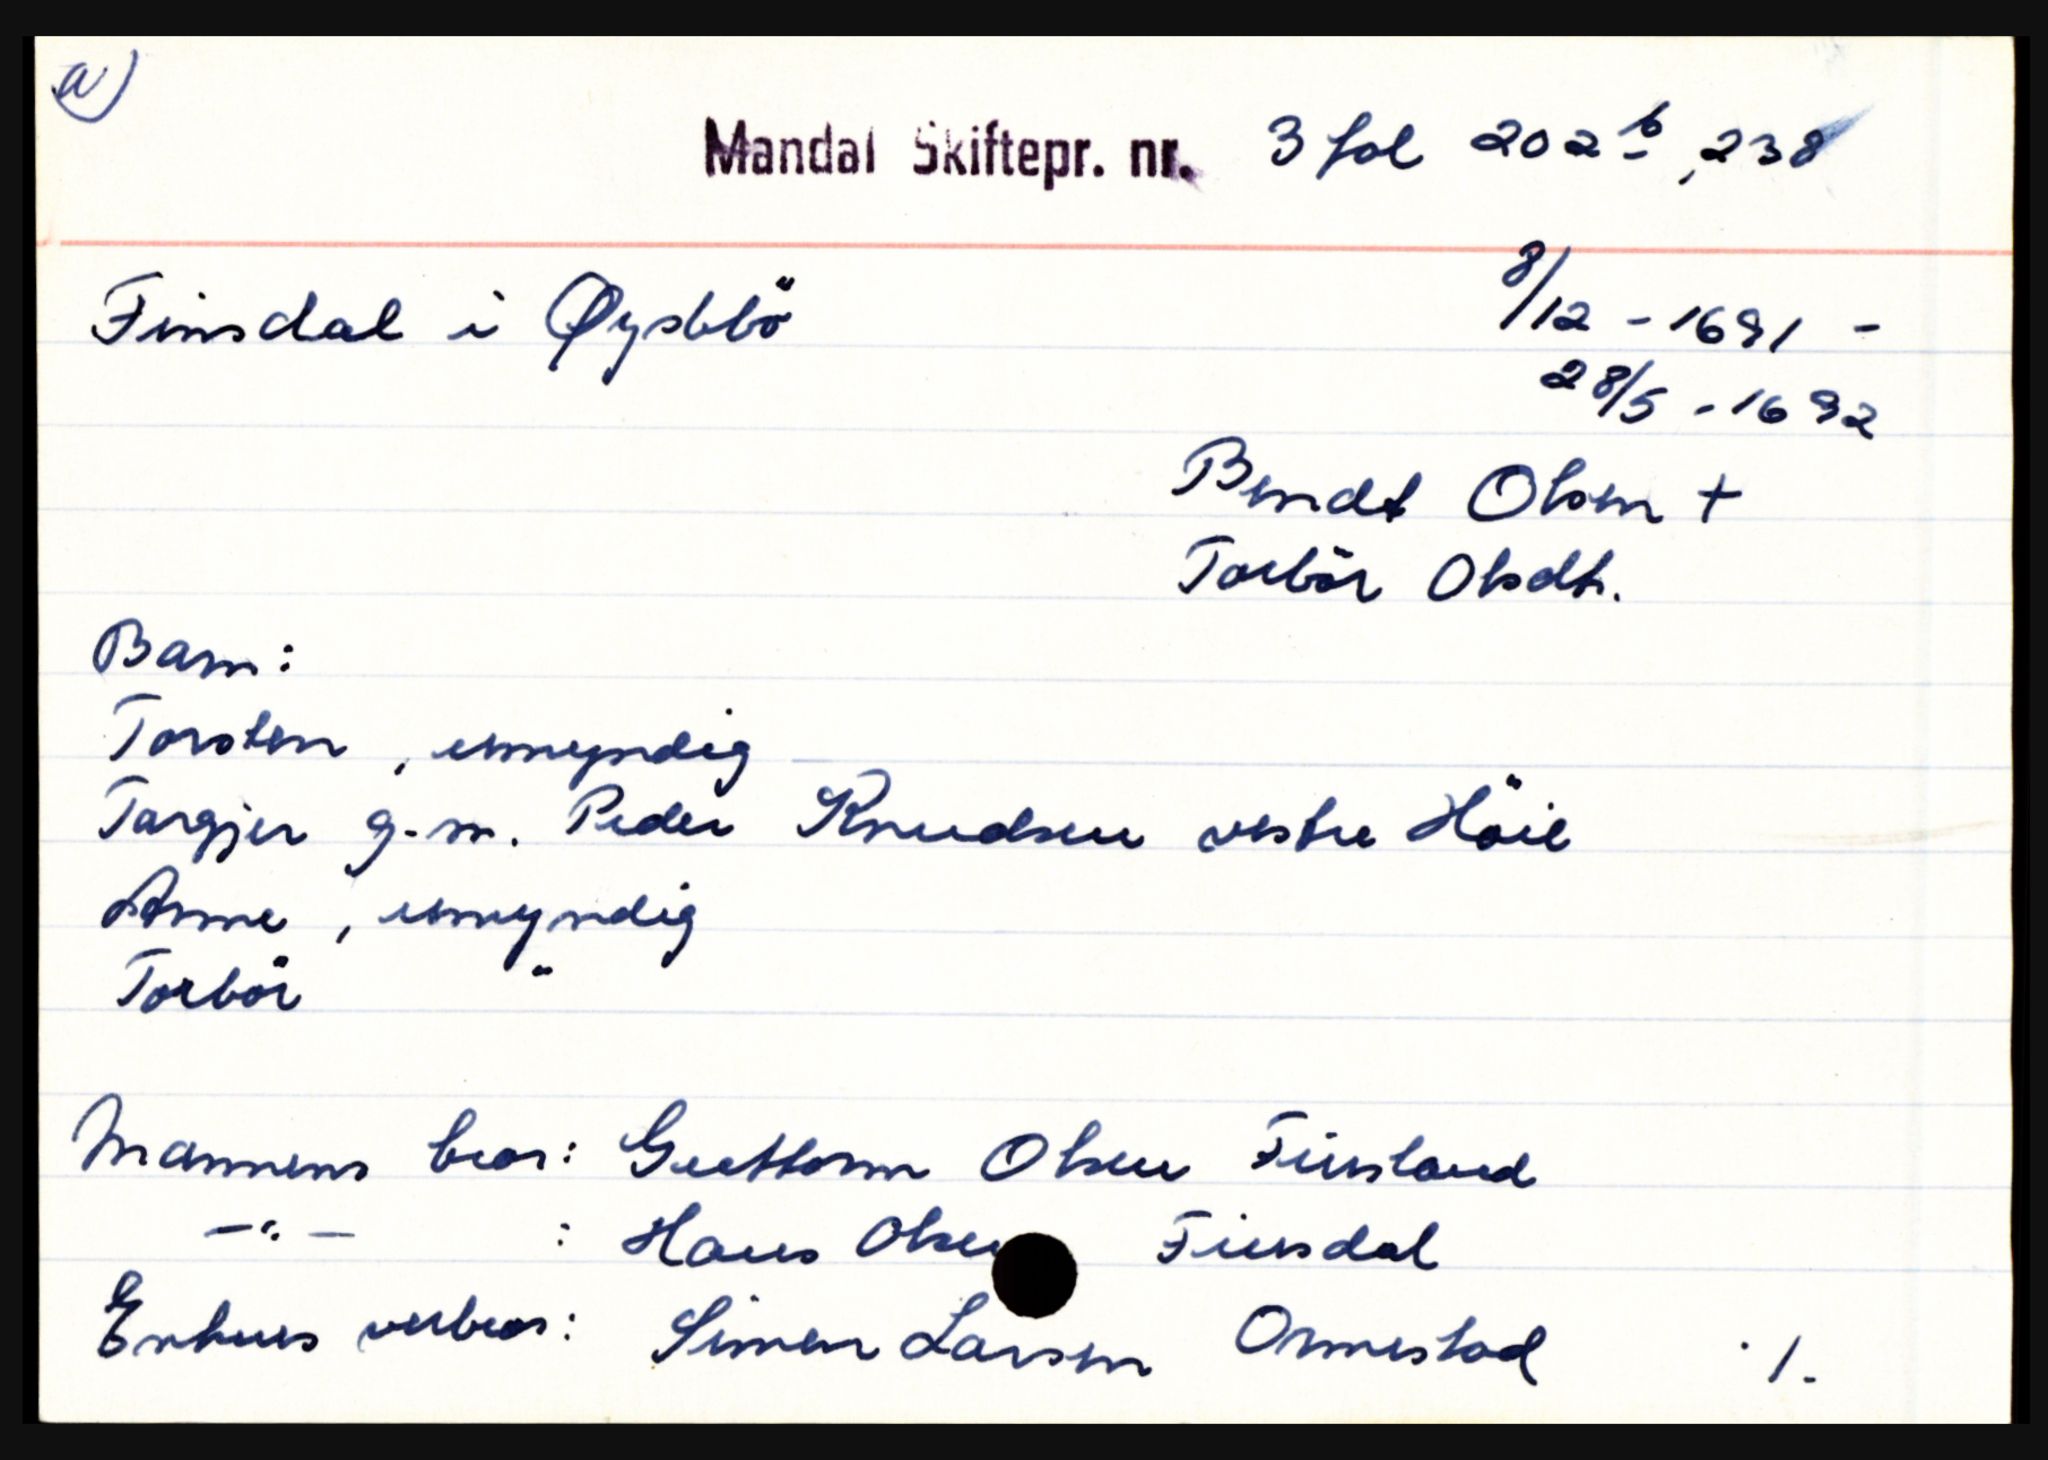 a)
Mandal Skiftepr. nr. 3 fol 202 b, 238
Finsdal i Øyslebö
8/12 - 1691 -
28/5 - 1692
Bendt Olsen +
Torbör Olsdtr.
Barn:
Torsten, umyndig
Targjer g.m. Peder Knudsen vestre Höie
Anne, umyndig
Torbör "
Mannens bror: Guttorm Olsen Finsland
-"- : Hans Olsen Finsdal
Enkens verbror: Simen Larsen Ormestad ./.